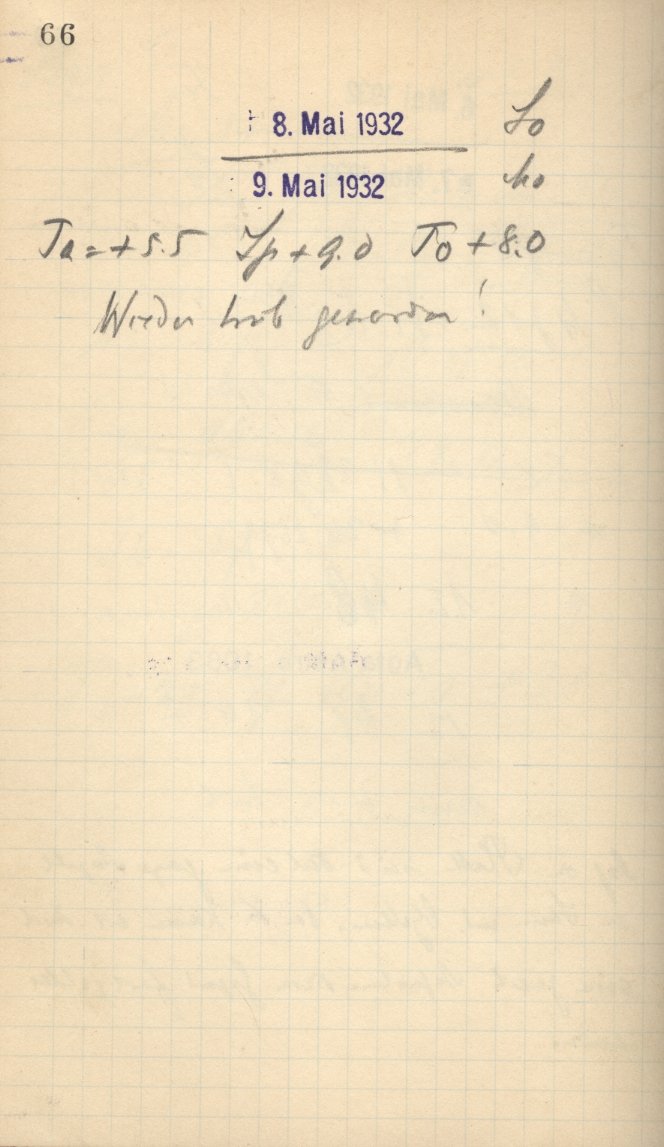 66
8. Mai 1932 So
9. Mai 1932 Mo
Ta = + 5.5 Sp + 9.0 To + 8.0
Wieder trüb geworden!